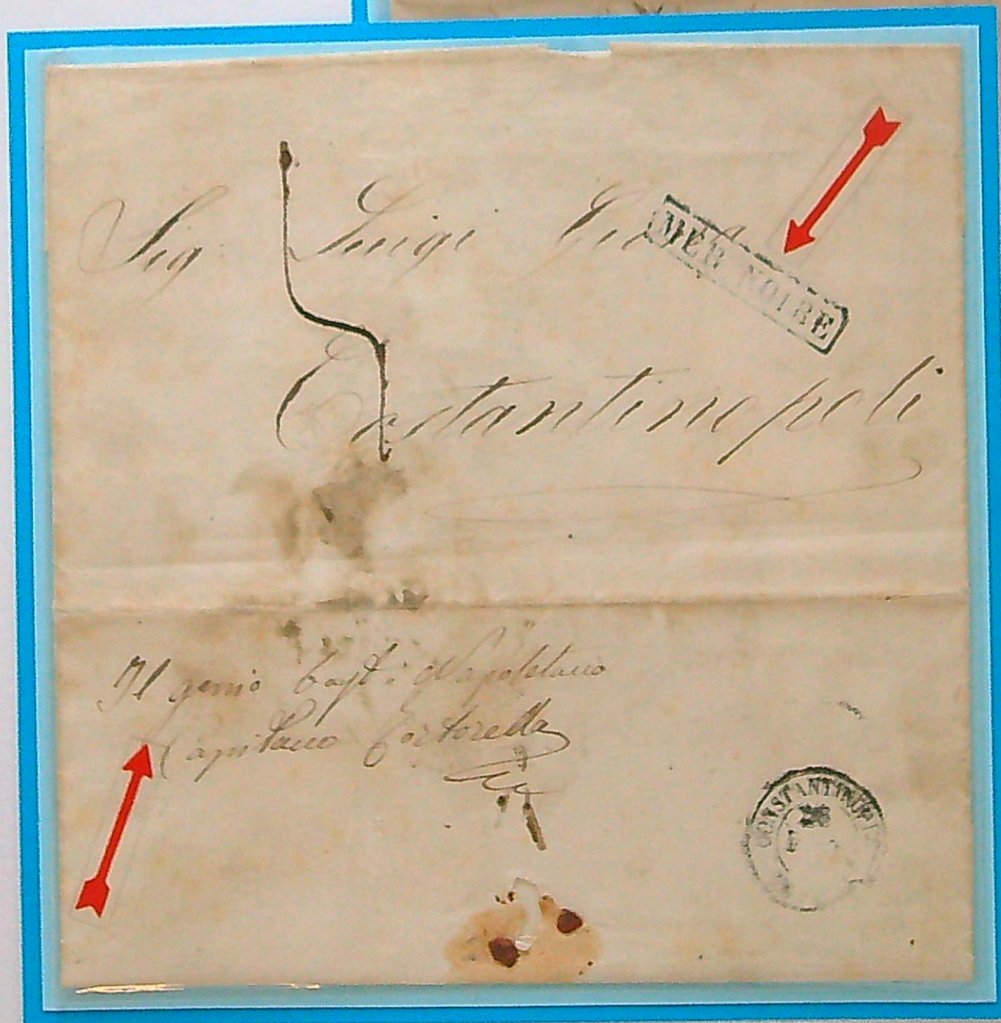 Sig Luigi
MER NOIRE
Costantinopoli
Il genio Capt: Napoletano
Capitano Tortorella
CONSTANTINOPLE